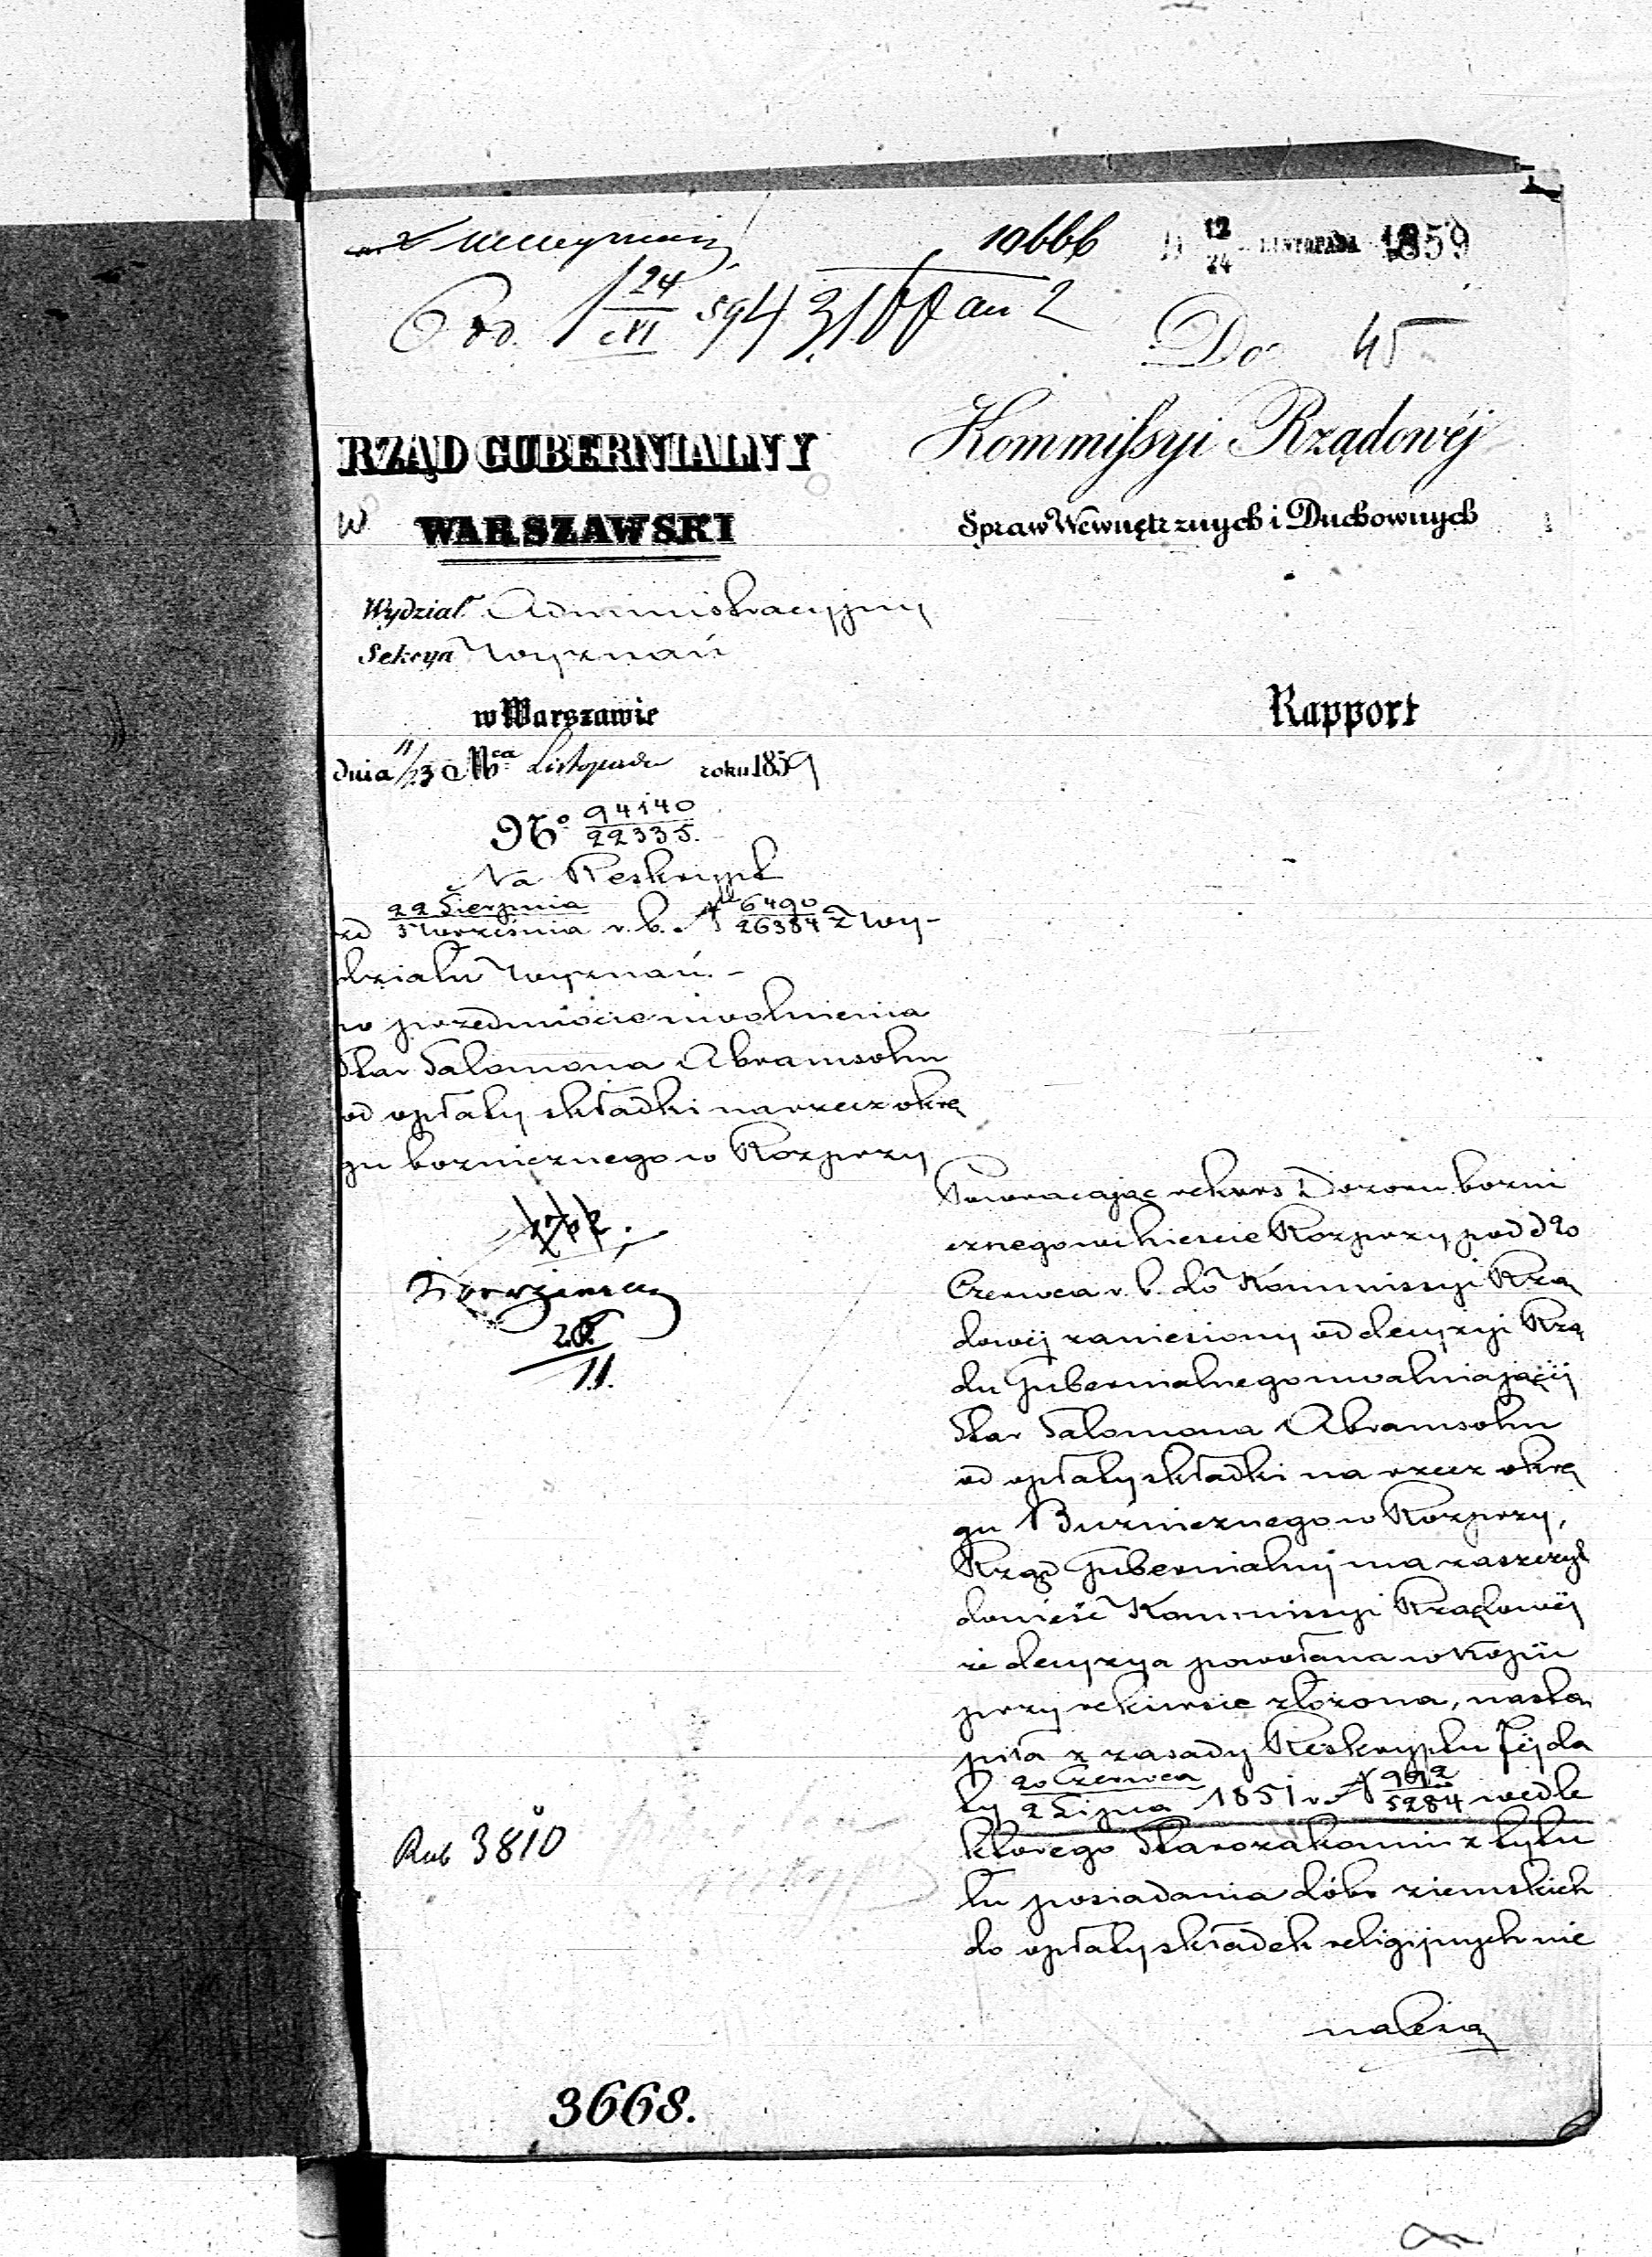 10666
D 12/24 LISTOPADA 1859
Do 45
RZĄD GUBERNIALNY
w WARSZAWSKI
Wydział Administracyjny
Sekcya Wyznań
w Warszawie
dnia 11/23 Mca Listopada roku 1859
No 94140/22335.
Na Reskrypt
od 22 Sierpnia/3 Września r. b. N 6490/26384 z Wy-
działu Wyznań.-
w przedmiocie uwolnienia
Star Salomona Abramsohn
od opłaty składki na rzecz okrę
gu bożnicznego w Rozprzy
20/11.
Rub 3810
3668.
Kommissyi Rządowéj
Spraw Wewnętrznych i Duchownych
Rapport
Powracając rekurs Dozoru bożni
cznego w Mieście Rozprzy pod d 20
Czerwca r. b. do Kommissyi Rzą
dowéj zaniesiony od decyzyi Rzą
du Gubernialnego uwalniającéj
Star Salomona Abramsohn
od opłaty składki na rzecz okrę
gu Bużnicznego w Rozprzy,
Rząd Gubernialny ma zaszczyt
donieść Kommissyi Rządowéj
że decyzya powołana w kopii
przy rekursie złożona, nastą
piła z zasady Reskryptu Jéj da
ty 20 Czerwca/2 Lipca 1851 r. N 992/5284 wedle
którego Starozakonni z tytu
łu posiadania dóbr ziemskich
do opłaty składek religijnych nie
należą